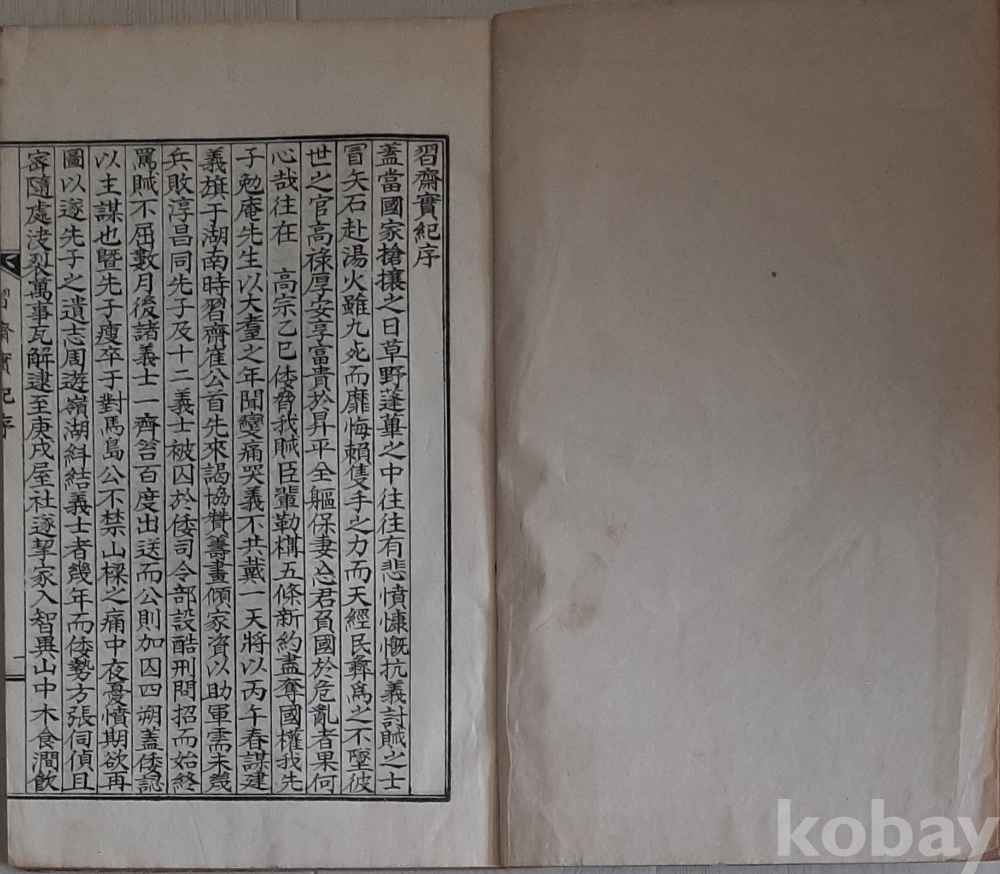 習齋實紀序
蓋當國家搶攘之日草野蓬蓽之中往往有悲憤慷慨抗義討賊之士
冒矢石赴湯火雖九死而靡悔賴隻手之力而天經民彝爲之不墜彼
世之官高祿厚安享富貴於昇平全軀保妻忘君負國於危亂者果何
心哉往在 高宗乙巳倭脅我賊臣輩勒構五條新約盡奪國權我先
子勉庵先生以大耋之年聞變痛哭義不共戴一天將以丙午春謀建
義旗于湖南時習齋崔公首先來謁協贊籌畫傾家資以助軍需未幾
兵敗淳昌同先子及十二義士被囚於倭司令部設酷刑問招而始終
罵賊不屈數月後諸義士一齊笞百度出送而公則加囚四朔蓋倭認
以主謀也曁先子瘦卒于對馬島公不禁山樑之痛中夜憂憤期欲再
圖以遂先子之遺志周遊嶺湖糾結義士者幾年而倭勢方張伺偵且
密隨處決裂萬事瓦解逮至庚戌屋社遂挈家入智異山中木食澗飮
習齋實紀序
一
kobay